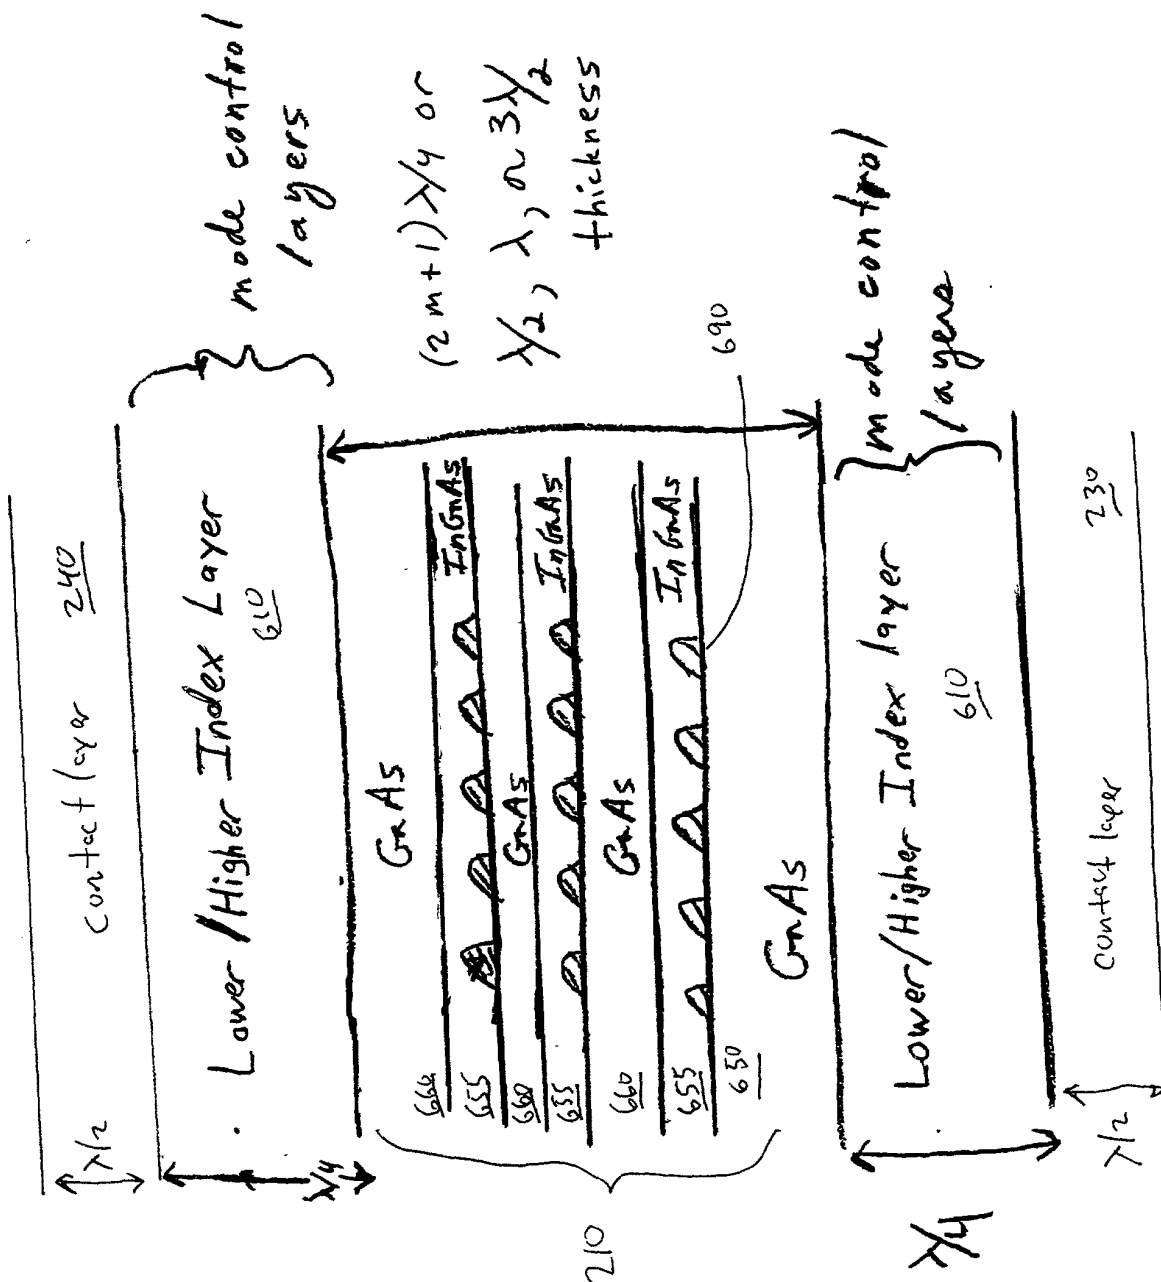 λ/2 contact layer 240
λ/4 Lower/Higher Index Layer
610
mode control
layers
GaAs
660
655 InGaAs
660 GaAs
655 InGaAs
660 GaAs
655 InGaAs
650
GaAs
210
(2m+1)λ/4 or
λ/2, λ, or 3λ/2
thickness
690
λ/4 Lower/Higher Index layer
610
mode control
layers
λ/2 contact layer 230